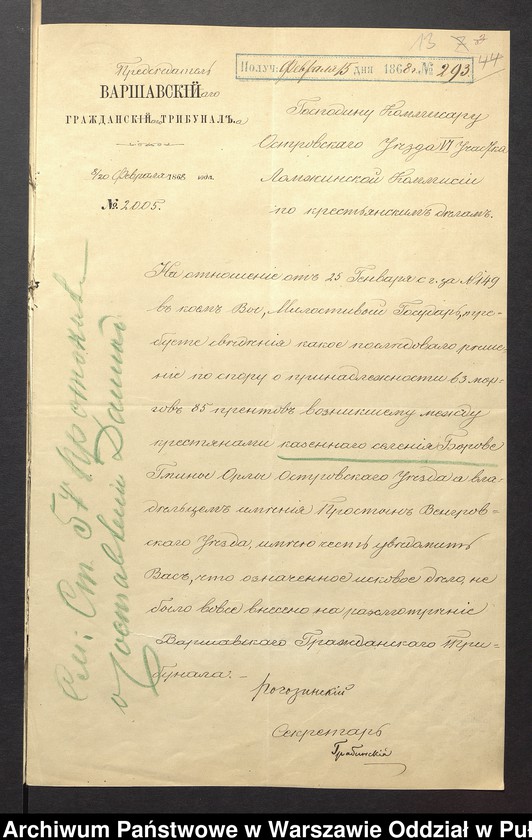 13
44
Получ. Февраля 15 дня 1868 г. № 293
Председатель
ВАРШАВСКІЙаго
ГРАЖДАНСКІЙаго ТРИБУНАЛЪа
8/20 Февраля 1868 года.
№ 2005.
Господину Коммисару
Островскаго Уѣзда VI Участка
Ломжинской Коммисіи
по крестьянскимъ дѣламъ.
На отношеніе отъ 25 Генваря с. г. за № 149
въ коемъ Вы, Милостивый Государь, тре-
буете свѣденія какое послѣдовало рѣше-
ніе по спору о принадлежности 3 мор-
говъ 85 прентовъ возникшему между
крестьянами казеннаго селенія Борове
Гмины Орлы Островскаго Уѣзда а вла-
дѣльцемъ имѣнія Простынь Венгров-
скаго Уѣзда, имѣю честь увѣдомить
Васъ, что означенное исковое дѣло, не
было вовсе внесено на разсмотрѣніе
Варшавскаго Гражданскаго Три-
бунала. –
Рогозинскій
Секретарь
Грабинскій
См: Ст 54 Протоколъ
о доставленіи Данныхъ
Archiwum Państwowe w Warszawie Oddział w Puł